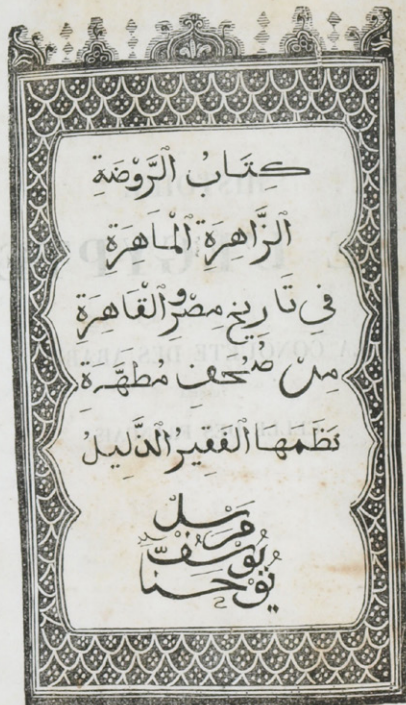 كِتَابُ ٱلرَّوْضَةِ
ٱلزَّاهِرَةِ ٱلْمَاهِرَةِ
فِي تَارِيخِ مِصْرَ وَٱلْقَاهِرَةِ
مِنْ صُحُفٍ مُطَهَّرَةٍ
نَظَمَهَا ٱلْفَقِيرُ ٱلذَّلِيلُ
مَرْسَل
يُوسُفُ
يُوحَنَّا